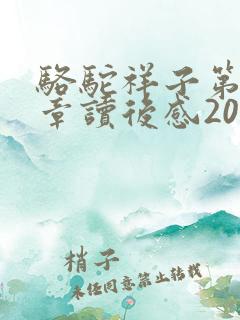 駱駝祥子第
章讀後感20
梢子
未任同意禁止轉載